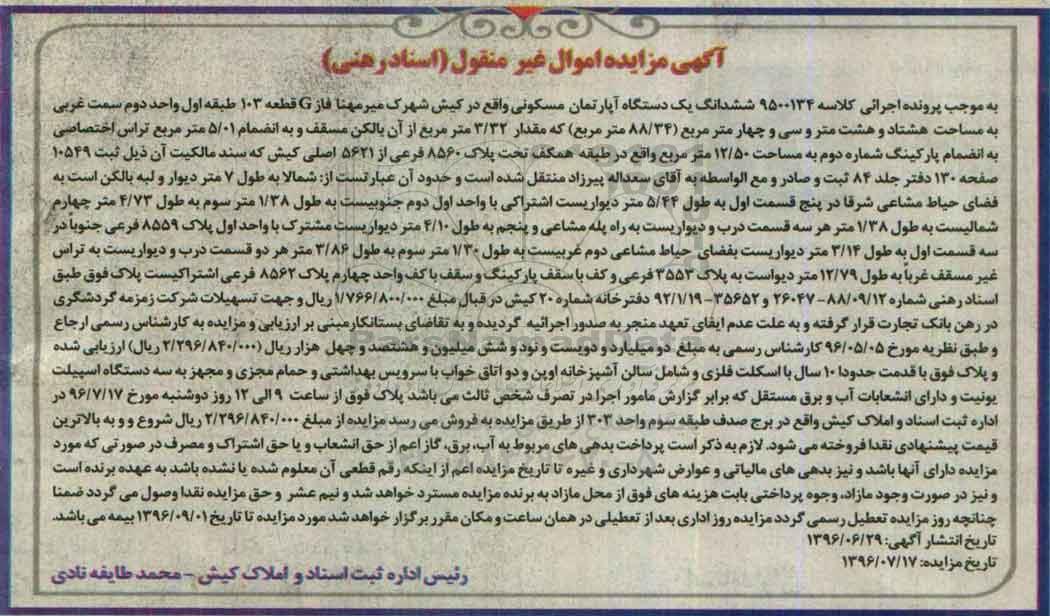 آگهی مزایده اموال غیر منقول (اسناد رهنی)
به موجب پرونده اجرائی کلاسه ۹۵۰۰۱۳۴ ششدانگ یک دستگاه آپارتمان مسکونی واقع در کیش شهرک میرمهنا فاز G قطعه ۱۰۳ طبقه اول واحد دوم سمت غربی
به مساحت هشتاد و هشت متر و سی و چهار متر مربع (۸۸/۳۴ متر مربع) که مقدار ۳/۳۲ متر مربع از آن بالکن مسقف و به انضمام ۵/۰۱ متر مربع تراس اختصاصی
به انضمام پارکینگ شماره دوم به مساحت ۱۲/۵۰ متر مربع واقع در طبقه همکف تحت پلاک ۸۵۶۰ فرعی از ۵۶۲۱ اصلی کیش که سند مالکیت آن ذیل ثبت ۱۰۵۴۹
صفحه ۱۳۰ دفتر جلد ۸۴ ثبت و صادر و مع الواسطه به آقای سعداله پیرزاد منتقل شده است و حدود آن عبارتست از: شمالا به طول ۷ متر دیوار و لبه بالکن است به
فضای حیاط مشاعی شرقا در پنج قسمت اول به طول ۵/۴۴ متر دیواریست اشتراکی با واحد اول دوم جنوبیست به طول ۱/۳۸ متر سوم به طول ۴/۷۳ متر چهارم
شمالیست به طول ۱/۳۸ متر هر سه قسمت درب و دیواریست به راه پله مشاعی و پنجم به طول ۴/۱۰ متر دیواریست مشترک با واحد اول پلاک ۸۵۵۹ فرعی جنوباً در
سه قسمت اول به طول ۳/۱۴ متر دیواریست بفضای حیاط مشاعی دوم غربیست به طول ۱/۳۰ متر سوم به طول ۳/۸۶ متر هر دو قسمت درب و دیواریست به تراس
غیر مسقف غرباً به طول ۱۲/۷۹ متر دیواست به پلاک ۳۵۵۳ فرعی و کف با سقف پارکینگ و سقف با کف واحد چهارم پلاک ۸۵۶۲ فرعی اشتراکیست پلاک فوق طبق
اسناد رهنی شماره ۸۸/۰۹/۱۲-۲۶۰۴۷ و ۳۵۶۵۲-۹۲/۱/۱۹ دفترخانه شماره ۲۰ کیش در قبال مبلغ ۱/۷۶۶/۸۰۰/۰۰۰ ریال و جهت تسهیلات شرکت زمزمه گردشگری
در رهن بانک تجارت قرار گرفته و به علت عدم ایفای تعهد منجر به صدور اجرائیه گردیده و به تقاضای بستانکار مبنی بر ارزیابی و مزایده به کارشناس رسمی ارجاع
و طبق نظریه مورخ ۹۶/۰۵/۰۵ کارشناس رسمی به مبلغ دو میلیارد و دویست و نود و شش میلیون و هشتصد و چهل هزار ریال (۲/۲۹۶/۸۴۰/۰۰۰ ریال) ارزیابی شده
و پلاک فوق با قدمت حدودا ۱۰ سال با اسکلت فلزی و شامل سالن آشپزخانه اوپن و دو اتاق خواب با سرویس بهداشتی و حمام مجزی و مجهز به سه دستگاه اسپیلت
یونیت و دارای انشعابات آب و برق مستقل که برابر گزارش مامور اجرا در تصرف شخص ثالث می باشد پلاک فوق از ساعت ۹ الی ۱۲ روز دوشنبه مورخ ۹۶/۷/۱۷ در
اداره ثبت اسناد و املاک کیش واقع در برج صدف طبقه سوم واحد ۳۰۳ از طریق مزایده به فروش می رسد مزایده از مبلغ ۲/۲۹۶/۸۴۰/۰۰۰ ریال شروع و و به بالاترین
قیمت پیشنهادی نقدا فروخته می شود. لازم به ذکر است پرداخت بدهی های مربوط به آب، برق، گاز اعم از حق انشعاب و یا حق اشتراک و مصرف در صورتی که مورد
مزایده دارای آنها باشد و نیز بدهی های مالیاتی و عوارض شهرداری و غیره تا تاریخ مزایده اعم از اینکه رقم قطعی آن معلوم شده یا نشده باشد به عهده برنده است
و نیز در صورت وجود مازاد، وجوه پرداختی بابت هزینه های فوق از محل مازاد به برنده مزایده مسترد خواهد شد و نیم عشر و حق مزایده نقدا وصول می گردد ضمنا
چنانچه روز مزایده تعطیل رسمی گردد مزایده روز اداری بعد از تعطیلی در همان ساعت و مکان مقرر برگزار خواهد شد مورد مزایده تا تاریخ ۱۳۹۶/۰۹/۰۱ بیمه می باشد.
تاریخ انتشار آگهی: ۱۳۹۶/۰۶/۲۹
تاریخ مزایده: ۱۳۹۶/۰۷/۱۷
رئیس اداره ثبت اسناد و املاک کیش - محمد طایفه نادی